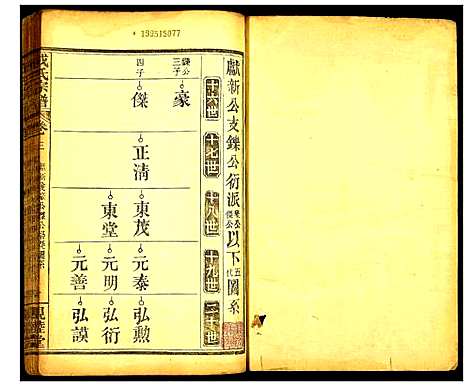 195515077
獻新公支鑠公衍派豪公傑公以下五代圖系
十六世
十七世
十八世
十九世
二十世
鑠公三子
豪
四子
傑
正清
東茂
東堂
元泰
元明
元善
弘勲
弘衍
弘謨
氏宗譜
卷